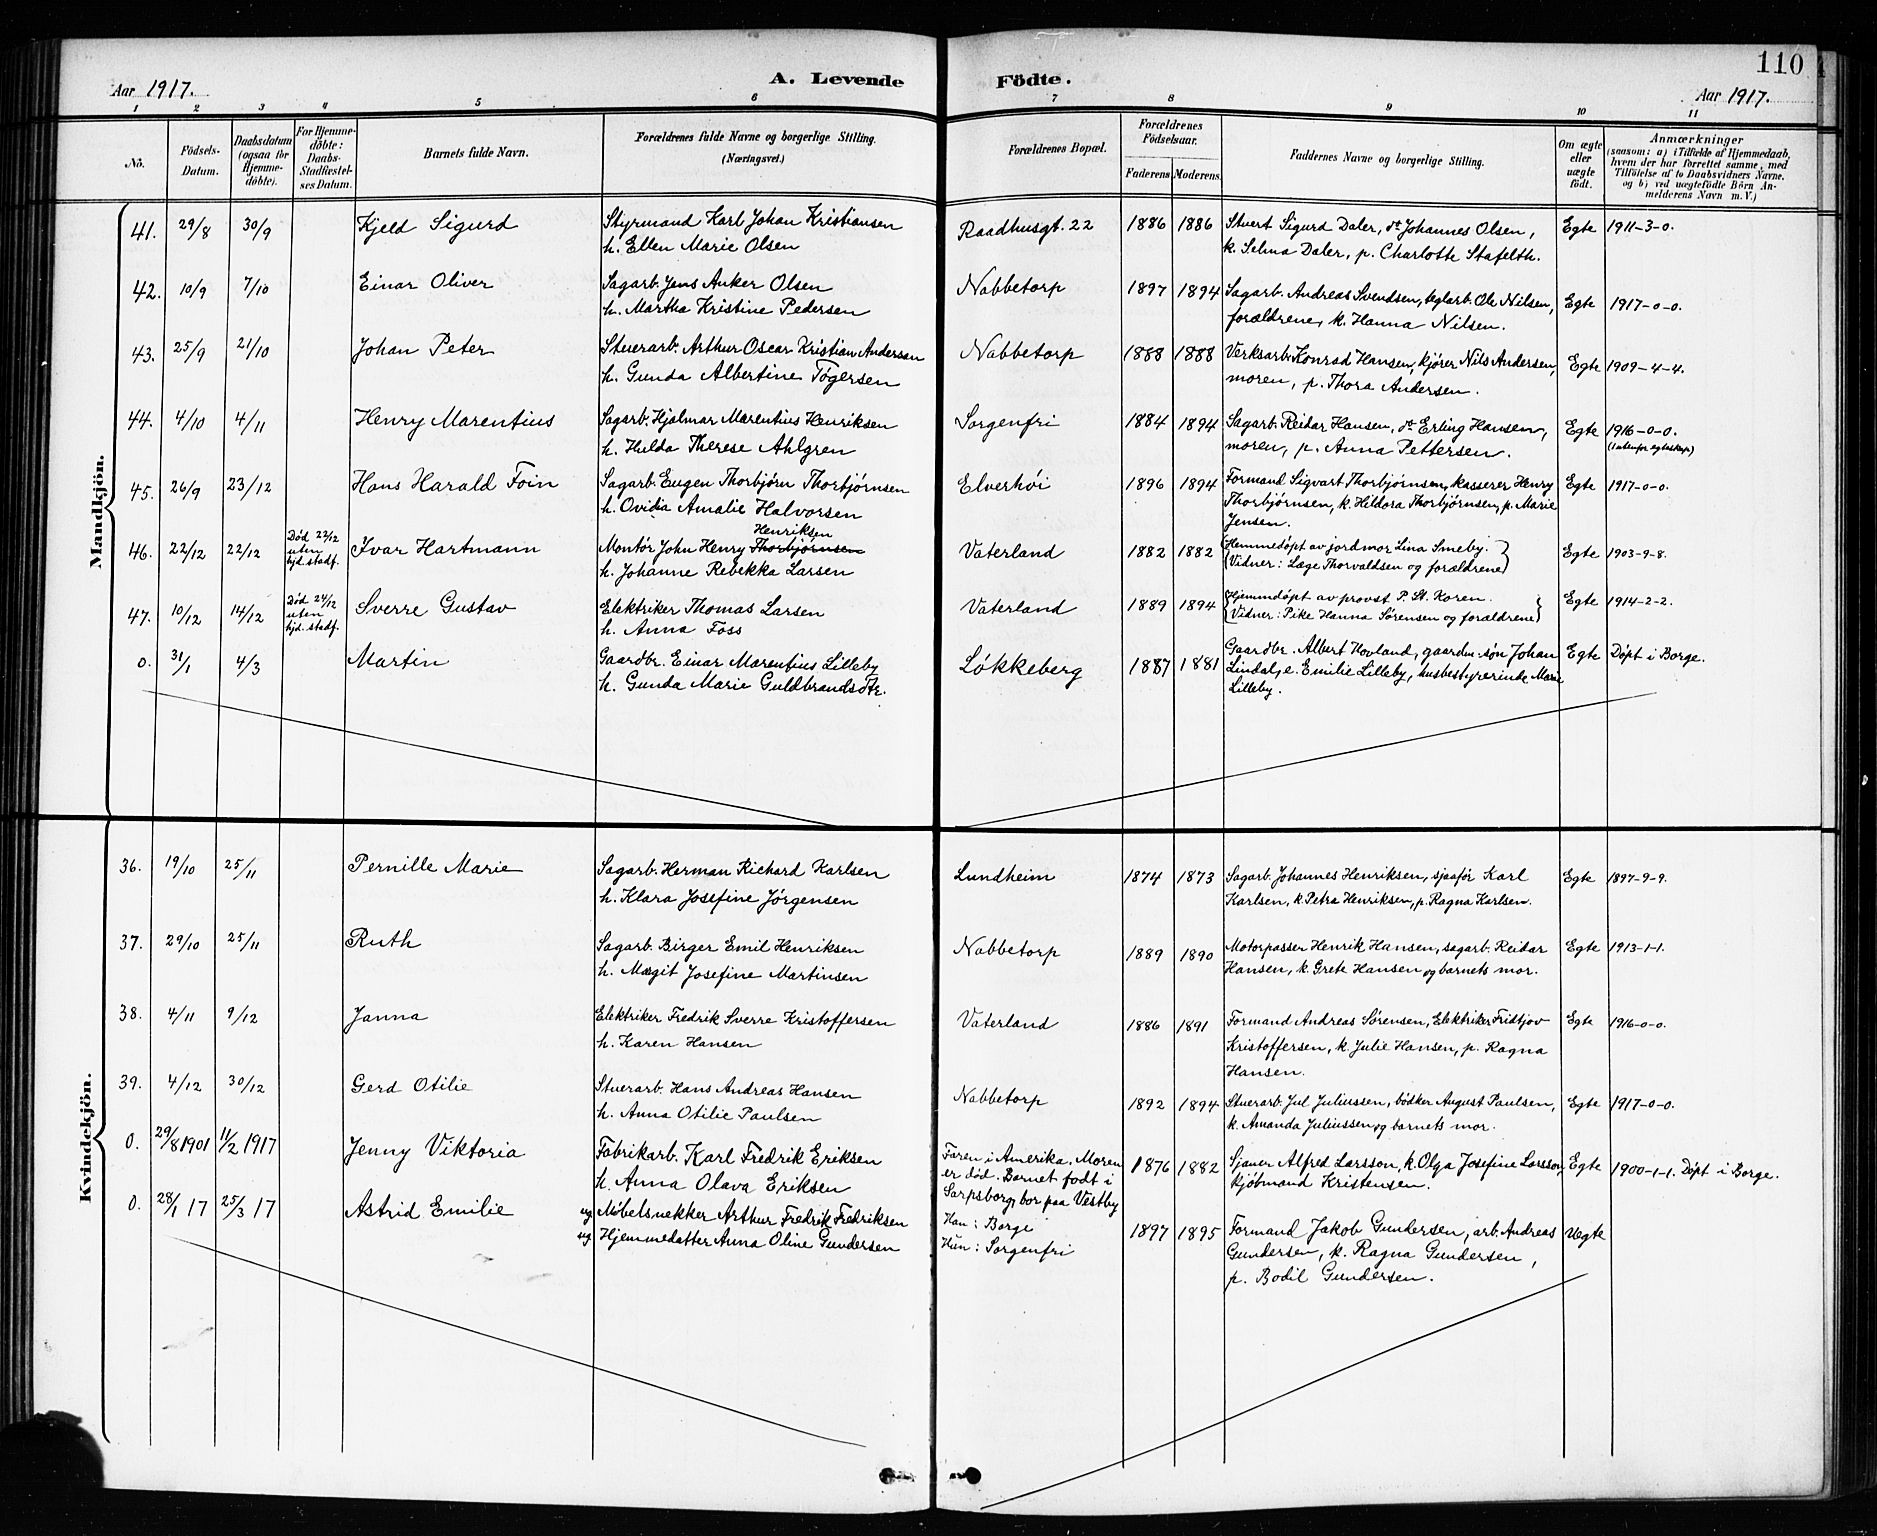 110
Aar 1917.
A. Levende Födte.
Aar 1917.
1 2 3 4 5 6 7 8 9 10 11
No.
Födsels-Datum.
Daabsdatum (ogsaa for Hjemme-döbte).
For Hjemme-döbte: Daabs-Stadfæstel-ses Datum.
Barnets fulde Navn.
Forældrenes fulde Navne og borgerlige Stilling. (Næringsvei.)
Forældrenes Bopæl.
Forældrenes Födselsaar.
Faderens Moderens
Faddernes Navne og borgerlige Stilling.
Om ægte eller uægte födt.
Anmærkninger
(saasom: a) i Tilfælde af Hjemmedaab, hvem der har forrettet samme, med Tilföielse af to Daabsvidners Navne, og b) ved uægtefödte Börn An-melderens Navn m. V.)
Mandkjön.
41. 29/8 30/9 Kjeld Sigurd Styrmand Karl Johan Kristiansen Raadhusgt. 22 1886 1886 Stuert Sigurd Daler, do Johannes Olsen, Egte 1911-3-0.
h. Ellen Marie Olsen k. Selma Daler, p. Charlotte Stafelth.
42. 10/9 7/10 Einar Oliver Sagarb. Jens Anker Olsen Nabbetorp 1897 1894 Sagarb. Andreas Svendsen, teglarb. Ole Nilsen, Egte 1917-0-0.
h. Martha Kristine Pedersen forældrene, k. Hanna Nilsen.
43. 25/9 21/10 Johan Peter Stuerarb. Arthur Oscar Kristian Andersen Nabbetorp 1888 1888 Verksarb. Konrad Hansen, kjører Nils Andersen, Egte 1909-4-4.
h. Gunda Albertine Tøgersen moren, p. Thora Andersen.
44. 4/10 4/11 Henry Marentius Sagarb. Hjalmar Marentius Henriksen Sorgenfri 1884 1894 Sagarb. Reidar Hansen, do Erling Hansen, Egte 1916-0-0.
h. Hulda Therese Ahlgren moren, p. Anna Pettersen.
45. 26/9 23/12 Hans Harald Foin Sagarb. Eugen Thorbjørn Thorbjørnsen Elverhöi 1896 1894 Formand Sigvart Thorbjørnsen, kasserer Henry Egte 1917-0-0.
h. Ovidia Amalie Halvorsen Thorbjørnsen, k. Hildora Thorbjørnsen, p. Marie
Jensen.
46. 22/12 22/12 Død 22/12 uten hjd. stadf. Ivar Hartmann Montör John Henry Thorbjørnsen Henriksen Vaterland 1882 1882 Hemmedøpt av jordmor Lina Smeby. Egte 1903-9-8.
h. Johanne Rebekka Larsen Vidner: Læge Thorvaldsen og forældrene
47. 10/12 14/12 Død 24/12 uten hjd. stadf. Sverre Gustav Elektriker Thomas Larsen Vaterland 1889 1894 Hjemmdøpt av provst P. St. Koren. Egte 1914-2-2.
h. Anna Foss Vidner: Pike Hanna Sørensen og forældrene
0. 31/1 4/3 Martin Gaardbr. Einar Marentius Lilleby Løkkeberg 1887 1881 Gaardbr. Albert Hovland, gaardm. søn Johan Egte Døpt i Borge.
h. Gunda Marie Guldbrandsdtr. Lindal, e. Emilie Lilleby, husbestyrerinde Marie
Lilleby.
Kvindekjön.
36. 19/10 25/11 Pernille Marie Sagarb. Herman Richard Karlsen Lundheim 1874 1873 Sagarb. Johannes Henriksen, sjaafør Karl Egte 1897-9-9.
h. Klara Josefine Jørgensen Karlsen, k. Petra Henriksen, p. Ragna Karlsen.
37. 29/10 25/11 Ruth Sagarb. Birger Emil Henriksen Nabbetorp 1889 1890 Motorpasser Henrik Hansen, sagarb. Reidar Egte 1913-1-1.
h. Magit Josefine Martinsen Hansen, k. Grete Hansen og barnets mor.
38. 4/11 9/12 Janna Elektriker Fredrik Sverre Kristoffersen Vaterland 1886 1891 Formand Andreas Sørensen, Elektriker Fridtjov Egte 1916-0-0.
h. Karen Hansen Kristoffersen, k. Julie Hansen, p. Ragna
Hansen.
39. 4/12 30/12 Gerd Otilie Stuerarb. Hans Andreas Hansen Nabbetorp 1892 1894 Stuerarb. Jul Juliussen, bödker August Paulsen, Egte 1917-0-0.
h. Anna Otilie Paulsen k. Amanda Juliussen og barnets mor.
0. 29/8 1901 11/2 1917 Jenny Viktoria Fabrikarb. Karl Fredrik Eriksen Faren i Amerika. Moren er død. Barnet født i Sarpsborg, bor paa Vestby 1876 1882 Sjauer Alfred Larsson, k. Olga Josefine Larsson, Egte 1900-1-1. Døpt i Borge.
h. Anna Olava Eriksen kjøbmand Kristensen.
0. 28/1 17 25/3 17 Astrid Emilie ug Møbelsnekker Arthur Fredrik Fredriksen Han: Borge 1897 1895 Formand Jakob Gundersen, arb. Andreas Uegte
ug Hjemmedatter Anna Oline Gundersen Hun: Sorgenfri Gundersen, k. Ragna Gundersen,
p. Bodil Gundersen.